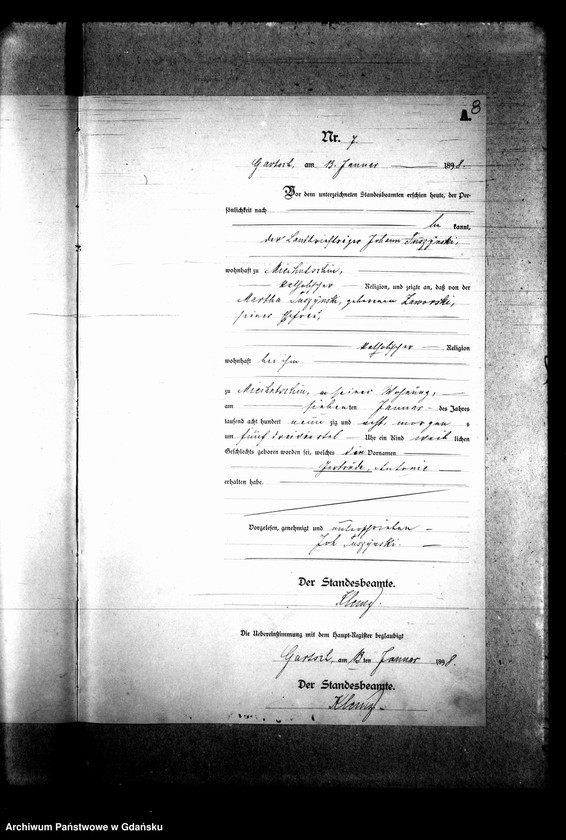 8
Nr. 7
am 13. Januar 1898.
Vor dem unterzeichneten Standesbeamten erschien heute, der Per-
sönlichkeit nach
be kannt,
der Johann Tuszynski,
wohnhaft zu
katholischer Religion, und zeigte an, daß von der
Martha Tuszynski, geborenen Zaworski,
seiner Ehefrau,
katholischer Religion
wohnhaft bei ihm
zu in seiner Wohnung,
am siebenten Januar des Jahres
tausend acht hundert neun zig und acht, morgens
um fünf dreiviertel Uhr ein Kind weib lichen
Geschlechts geboren worden sei, welches den Vornamen
Gertrude, Antonie
erhalten habe.
Vorgelesen, genehmigt und unterschrieben
Joh Tuszynski.
Der Standesbeamte.
Die Uebereinstimmung mit dem Haupt-Register beglaubigt
am 13 ten Januar 1898.
Der Standesbeamte.
Archiwum Państwowe w Gdańsku